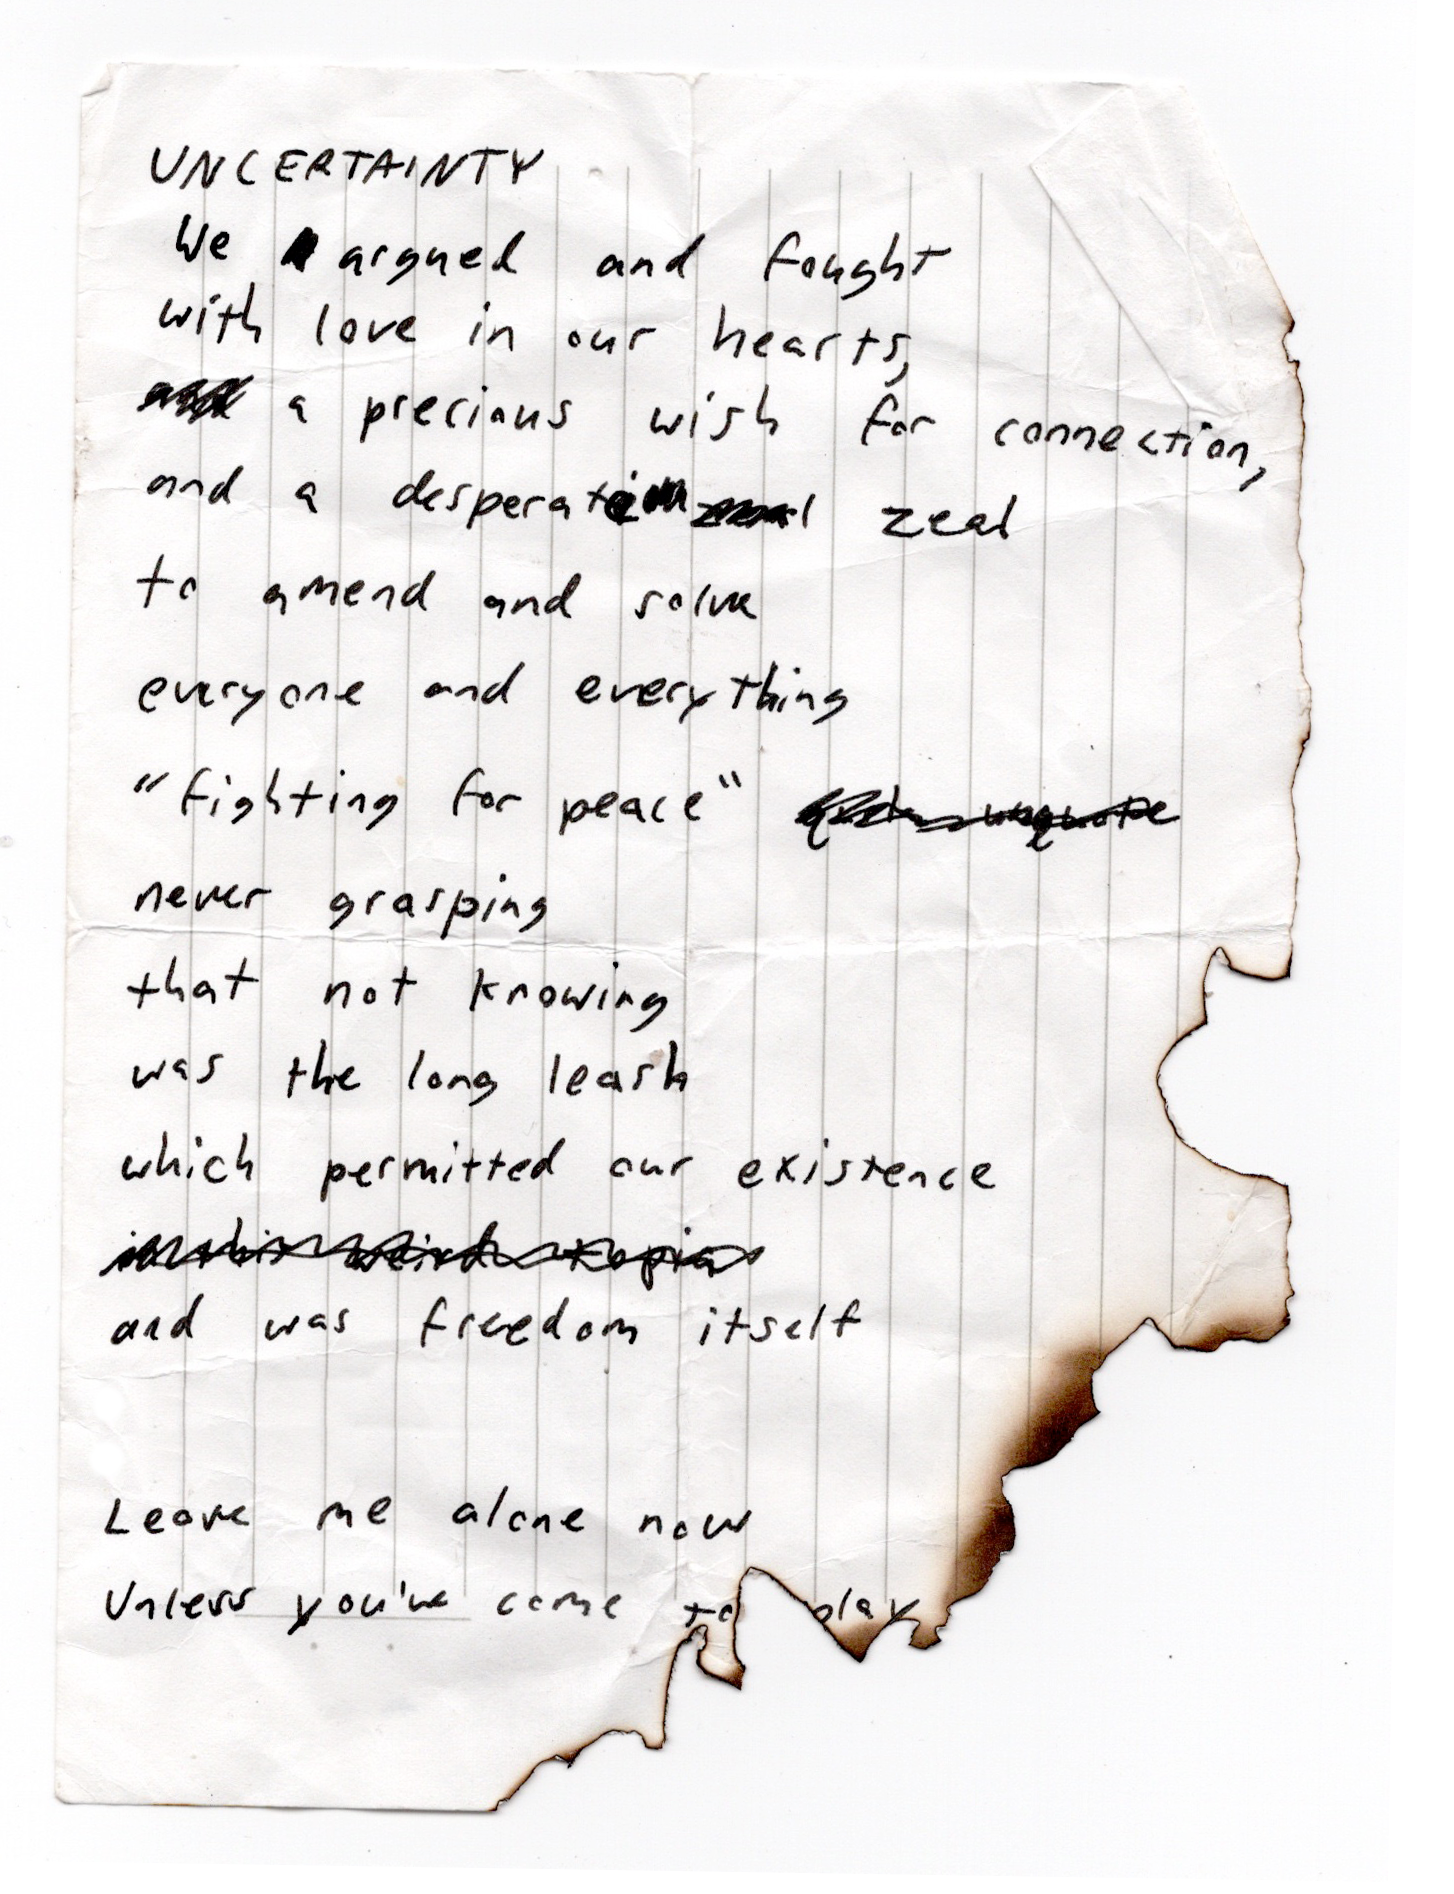 UNCERTAINTY
We argued and fought
with love in our hearts,
a precious wish for connection,
and a desperate zeal
to amend and solve
everyone and everything
"fighting for peace" unquote
never grasping
that not knowing
was the long leash
which permitted our existence
in this weird topia
and was freedom itself
Leave me alone now
Unless you've come to play